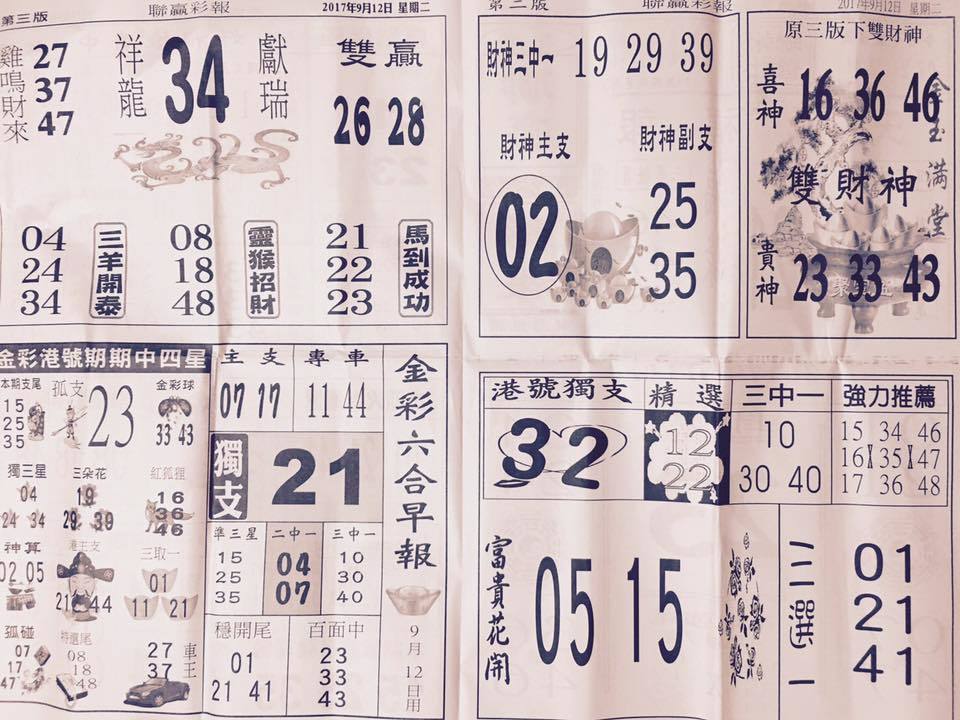 第三版
聯贏彩報
2017年9月12日 星期二
雞鳴財來
27
37
47
祥龍
34
獻瑞
雙贏
26 28
04
24
34
三羊開泰
08
18
48
靈猴招財
21
22
23
馬到成功
第三版
聯贏彩報
2017年9月12日 星期二
財神三中一
19 29 39
財神主支
02
財神副支
25
35
原三版下雙財神
喜神
16 36 46
金玉滿堂
雙財神
貴神
23 33 43
金彩港號期期中四星
本期支尾
15
25
35
孤支
23
金彩球
33 43
獨三星
04
24 34
三朵花
19
29 39
紅狐狸
16
36
46
神算
02 05
港主支
21 44
三取一
01
11 21
孤碰
07
17
47
特選尾
08
18
48
27
37
車王
主支
07 17
專車
11 44
獨支
21
準三星
15
25
35
二中一
04
07
三中一
10
30
40
穩開尾
01
21 41
百面中
23
33
43
金彩六合早報
9月12日用
港號獨支
32
精選
12
22
三中一
10
30 40
強力推薦
15 34 46
16 35 47
17 36 48
富貴花開
05 15
三選一
01
21
41